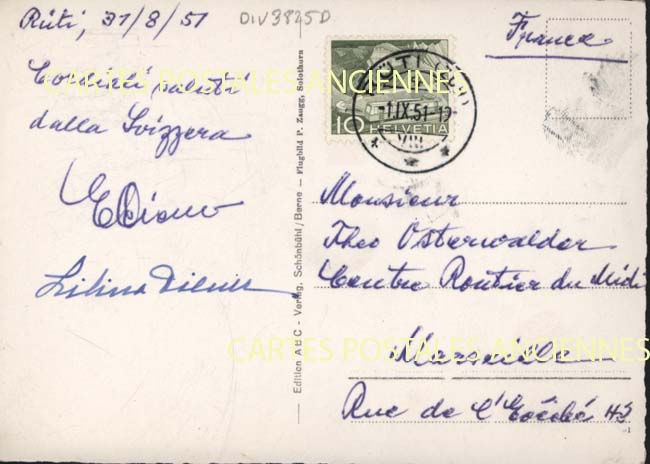 Rüti, 31/8/51
DIV3825D
Cordiali saluti
dalla Svizzera
Lilina
Edition ABC - Verlag. Schönbühl/Berne — Flugbild P. Zaugg, Solothurn
HELVETIA
10
RÜTI (ZH)
-1.IX.51-
VIII
France
Monsieur
Theo Osterwalder
Centre Routier du Midi
Marseille
Rue de l'Evêché 43
CARTES POSTALES ANCIENNES
CARTES POSTALES ANCIENNES